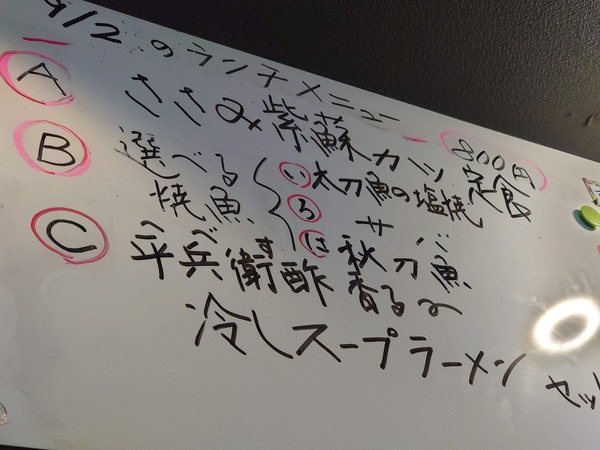 9/2 のランチメニュー
800円
A ささみ紫蘇カツ定食
B 選べる
焼魚
い 太刀魚の塩焼
ろ サバ
は 秋刀魚
へべす
C 平兵衛酢香る〜
冷しスープラーメン セッ